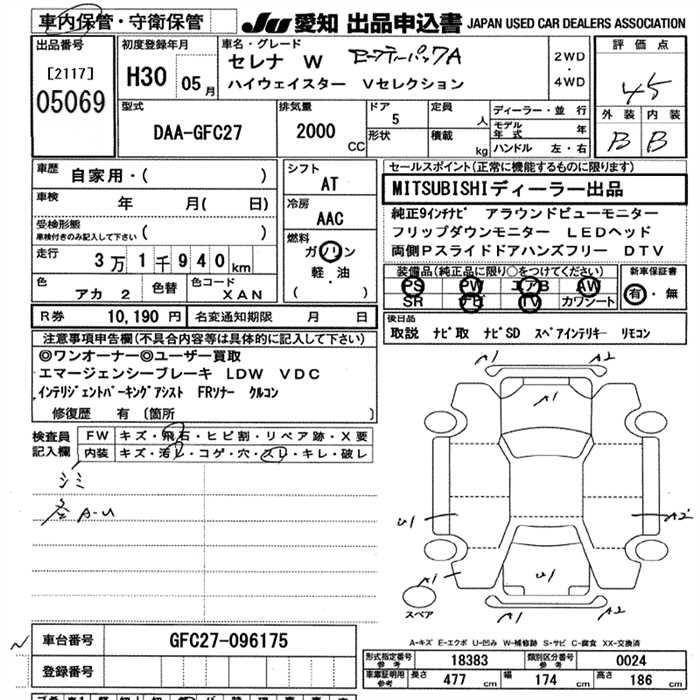 車内保管・守衛保管
JU 愛知 出品申込書 JAPAN USED CAR DEALERS ASSOCIATION
出品番号
[2117]
05069
初度登録年月
H30 05月
車名・グレード
セレナ W セーフティーパックA
ハイウェイスター Vセレクション
2WD
・
4WD
評価点
4.5
外装 内装
B B
型式
DAA-GFC27
排気量
2000 CC
ドア 5
形状
定員 人
積載 kg
ディーラー・並行
モデル年式 年
ハンドル 左・右
車歴 自家用・( )
車検 年 月( 日)
受検形態
車検付きのみ記入して下さい ( )
走行 3万1千940km
色 アカ 2 色替 色コード XAN
シフト
AT
冷房
AAC
燃料
ガソリン
軽・油
( )
セールスポイント(正常に機能するものに限ります)
MITSUBISHIディーラー出品
純正9インチナビ アラウンドビューモニター
フリップダウンモニター LEDヘッド
両側Pスライドドアハンズフリー DTV
装備品(純正品に限り○をつけてください)
PS PW エアB AW
SR ナビ TV カワシート
新車保証書
有・無
R券 10,190円 名変通知期限 月 日
後日品
取説 ナビ取 ナビSD スペアインテリキー リモコン
注意事項申告欄(不具合内容等は具体的に記入して下さい)
◎ワンオーナー◎ユーザー買取
エマージェンシーブレーキ LDW VDC
インテリジェントパーキングアシスト FRソナー クルコン
修復歴 有 (箇所 )
検査員記入欄
FW キズ・飛石・ヒビ割・リペア跡・X要
内装 キズ・汚れ・コゲ・穴・スレ・キレ・破レ
シミ
A-U
A1 A2
A1
U1 A2
A1 U1 A1
スペア
A-キズ E-エクボ U-凹み W-補修跡 S-サビ C-腐食 XX-交換済
車台番号 GFC27-096175
登録番号
形式指定番号 参考 18383 類別区分番号 参考 0024
車庫証明用 参考 長さ 477cm 幅 174cm 高さ 186cm